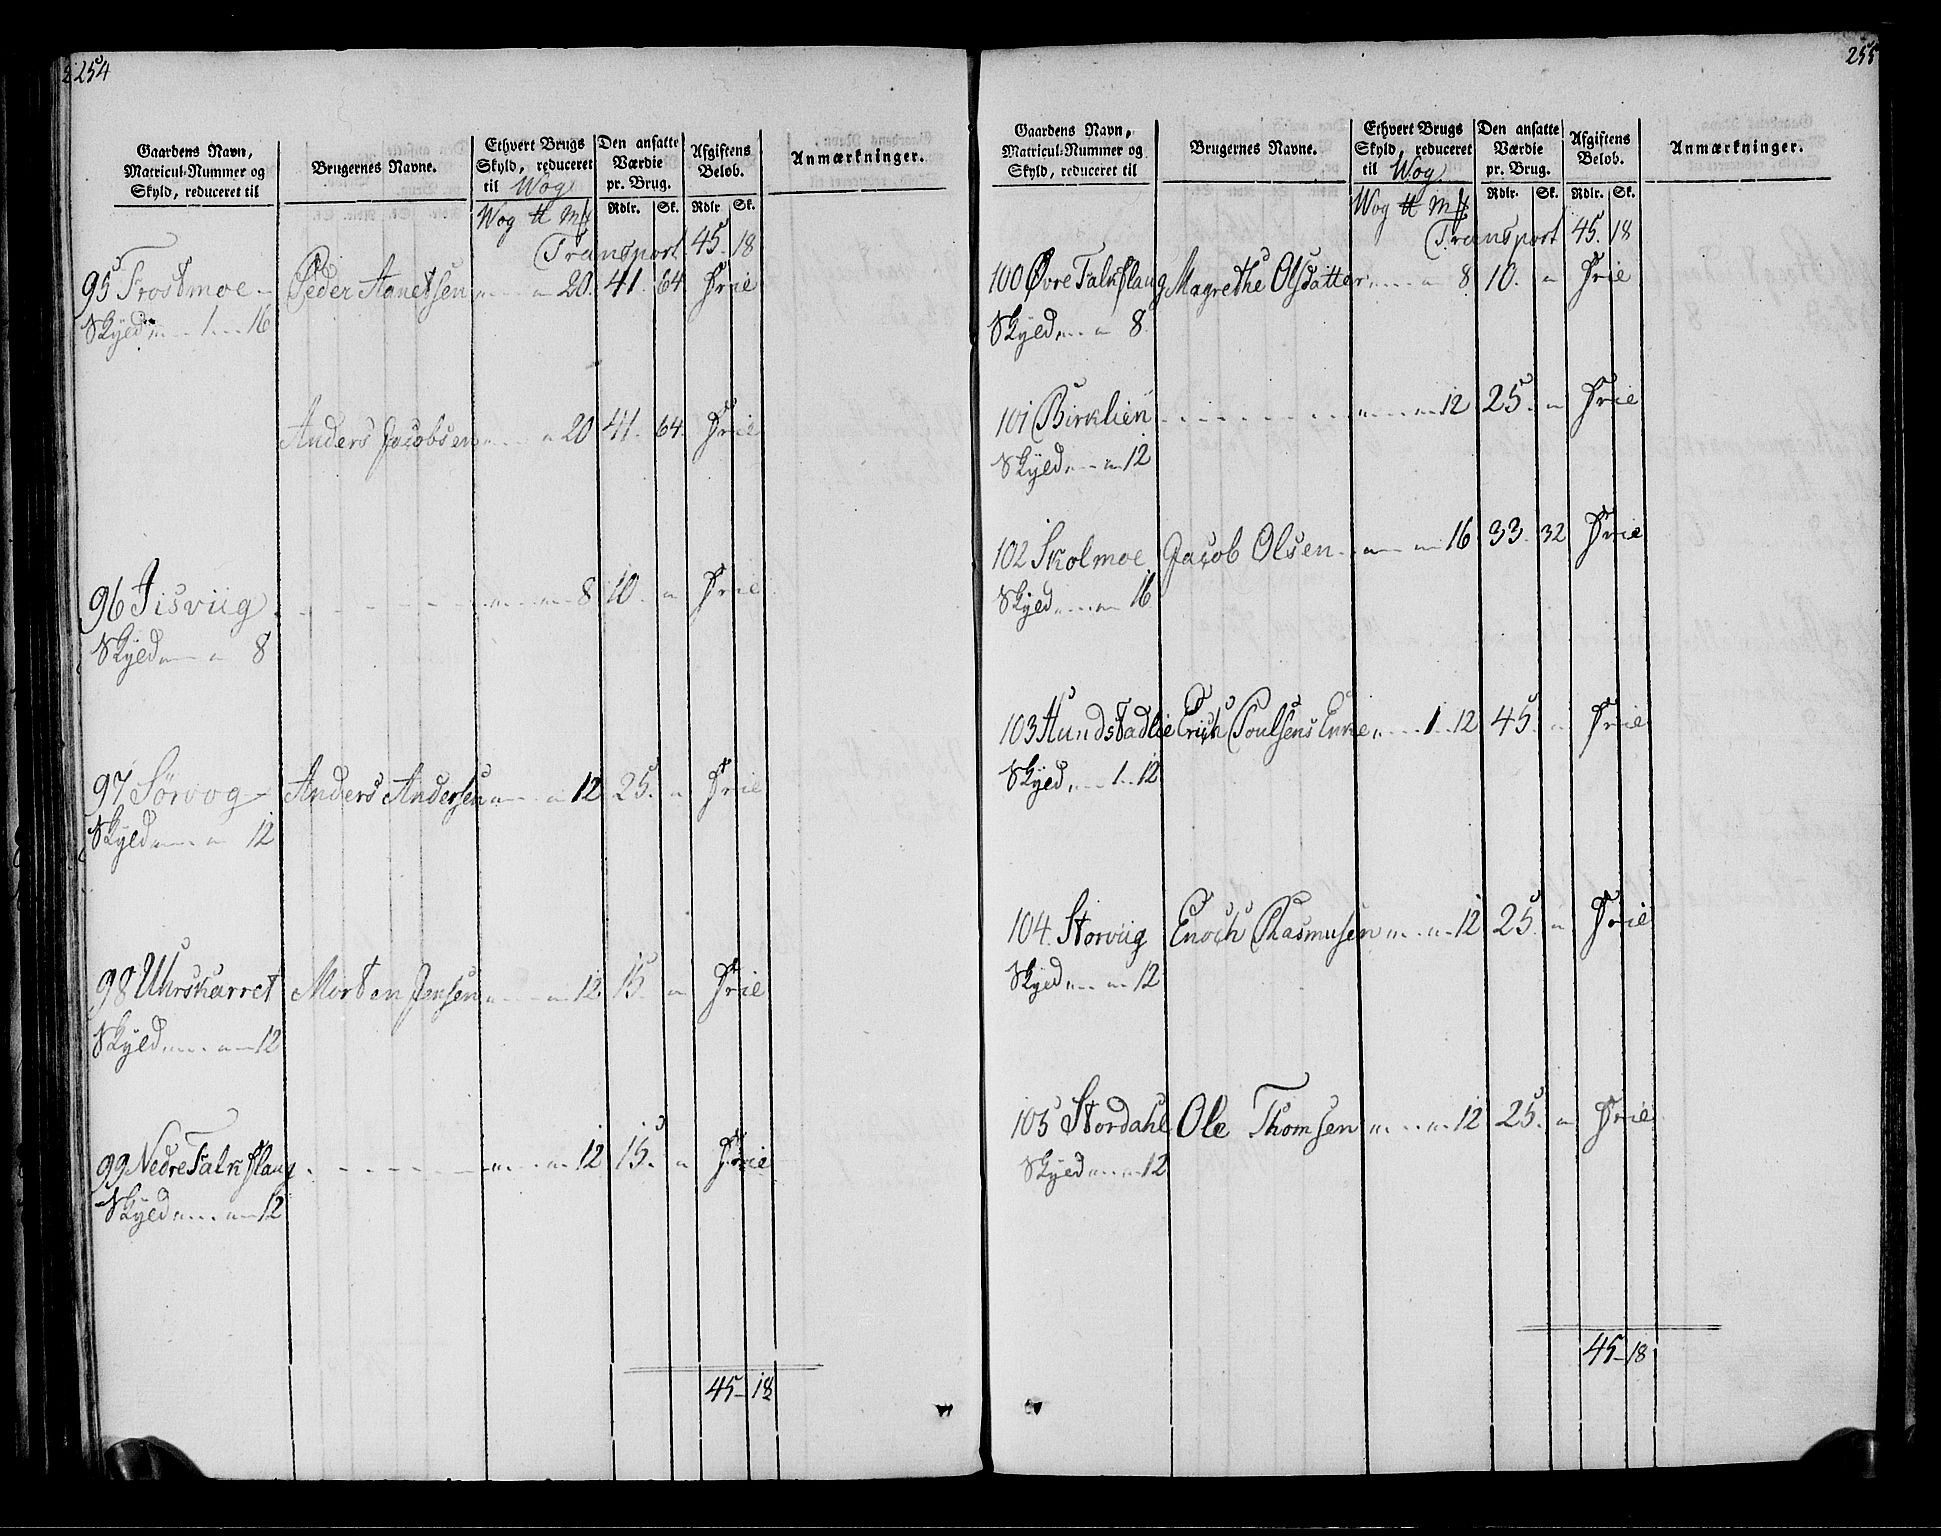 254
Gaardens Navn, Matricul-Nummer og Skyld, reduceret til
Brugernes Navne.
Ethvert Brugs Skyld, reduceret til Wog
Den ansatte Værdie pr. Brug.
Afgiftens Beløb.
Anmærkninger.
Wog ℔ Mk Rdlr. Sk. Rdlr Sk.
Transport 45. 18
95 Frostmoe - Peder Aanetsen „ - - „ 20. 41. 64 Frie
Skyld „ - - 1 - - 16
Anders Jacobsen „ - - „ 20 41. 64. Frie
96 Fisviig - - - - - „ - „ - 8 10. „ Frie
Skyld „ - „ 8
97 Sörvog - Anders Andersen „ - - „ 12 25. „ Frie
Skyld „ - - „ 12
98 Uhrskarret Morten Jensen „ - - „ 12 15. „ Frie
Skyld „ - - „ 12
99 Nedre Falkflaug - - - - - „ - - „ 12 15. „ Frie
Skyld „ - - „ 12
45 - 18
255
Gaardens Navn, Matricul-Nummer og Skyld, reduceret til
Brugernes Navne.
Ethvert Brugs Skyld, reduceret til Wog
Den ansatte Værdie pr. Brug.
Afgiftens Beløb.
Anmærkninger.
Wog ℔ Mk Rdlr. Sk. Rdlr. Sk.
Transport 45. 18
100 Øvre Falkflaug Magrethe Olsdatter „ - - „ 8 10. „ Frie
Skyld „ - - „ 8.
101 Birklien - - - - - „ - - „ 12 25. „ Frie
Skyld „ - - „ 12
102 Skolmoe Jacob Olsen - „ - - „ 16 33. 32 Frie
Skyld „ - - „ 16
103 Hundstadlie Erich Poulsens Enke „ - - 1 - 12 45. „ Frie
Skyld „ - - 1 - 12
104. Storviig Enoch Rasmusen „ - - „ 12 25. „ Frie
Skyld „ - - „ 12
105 Stordahl Ole Thomsen „ - - „ 12 25. „ Frie
Skyld „ - - „ 12
45 - 18